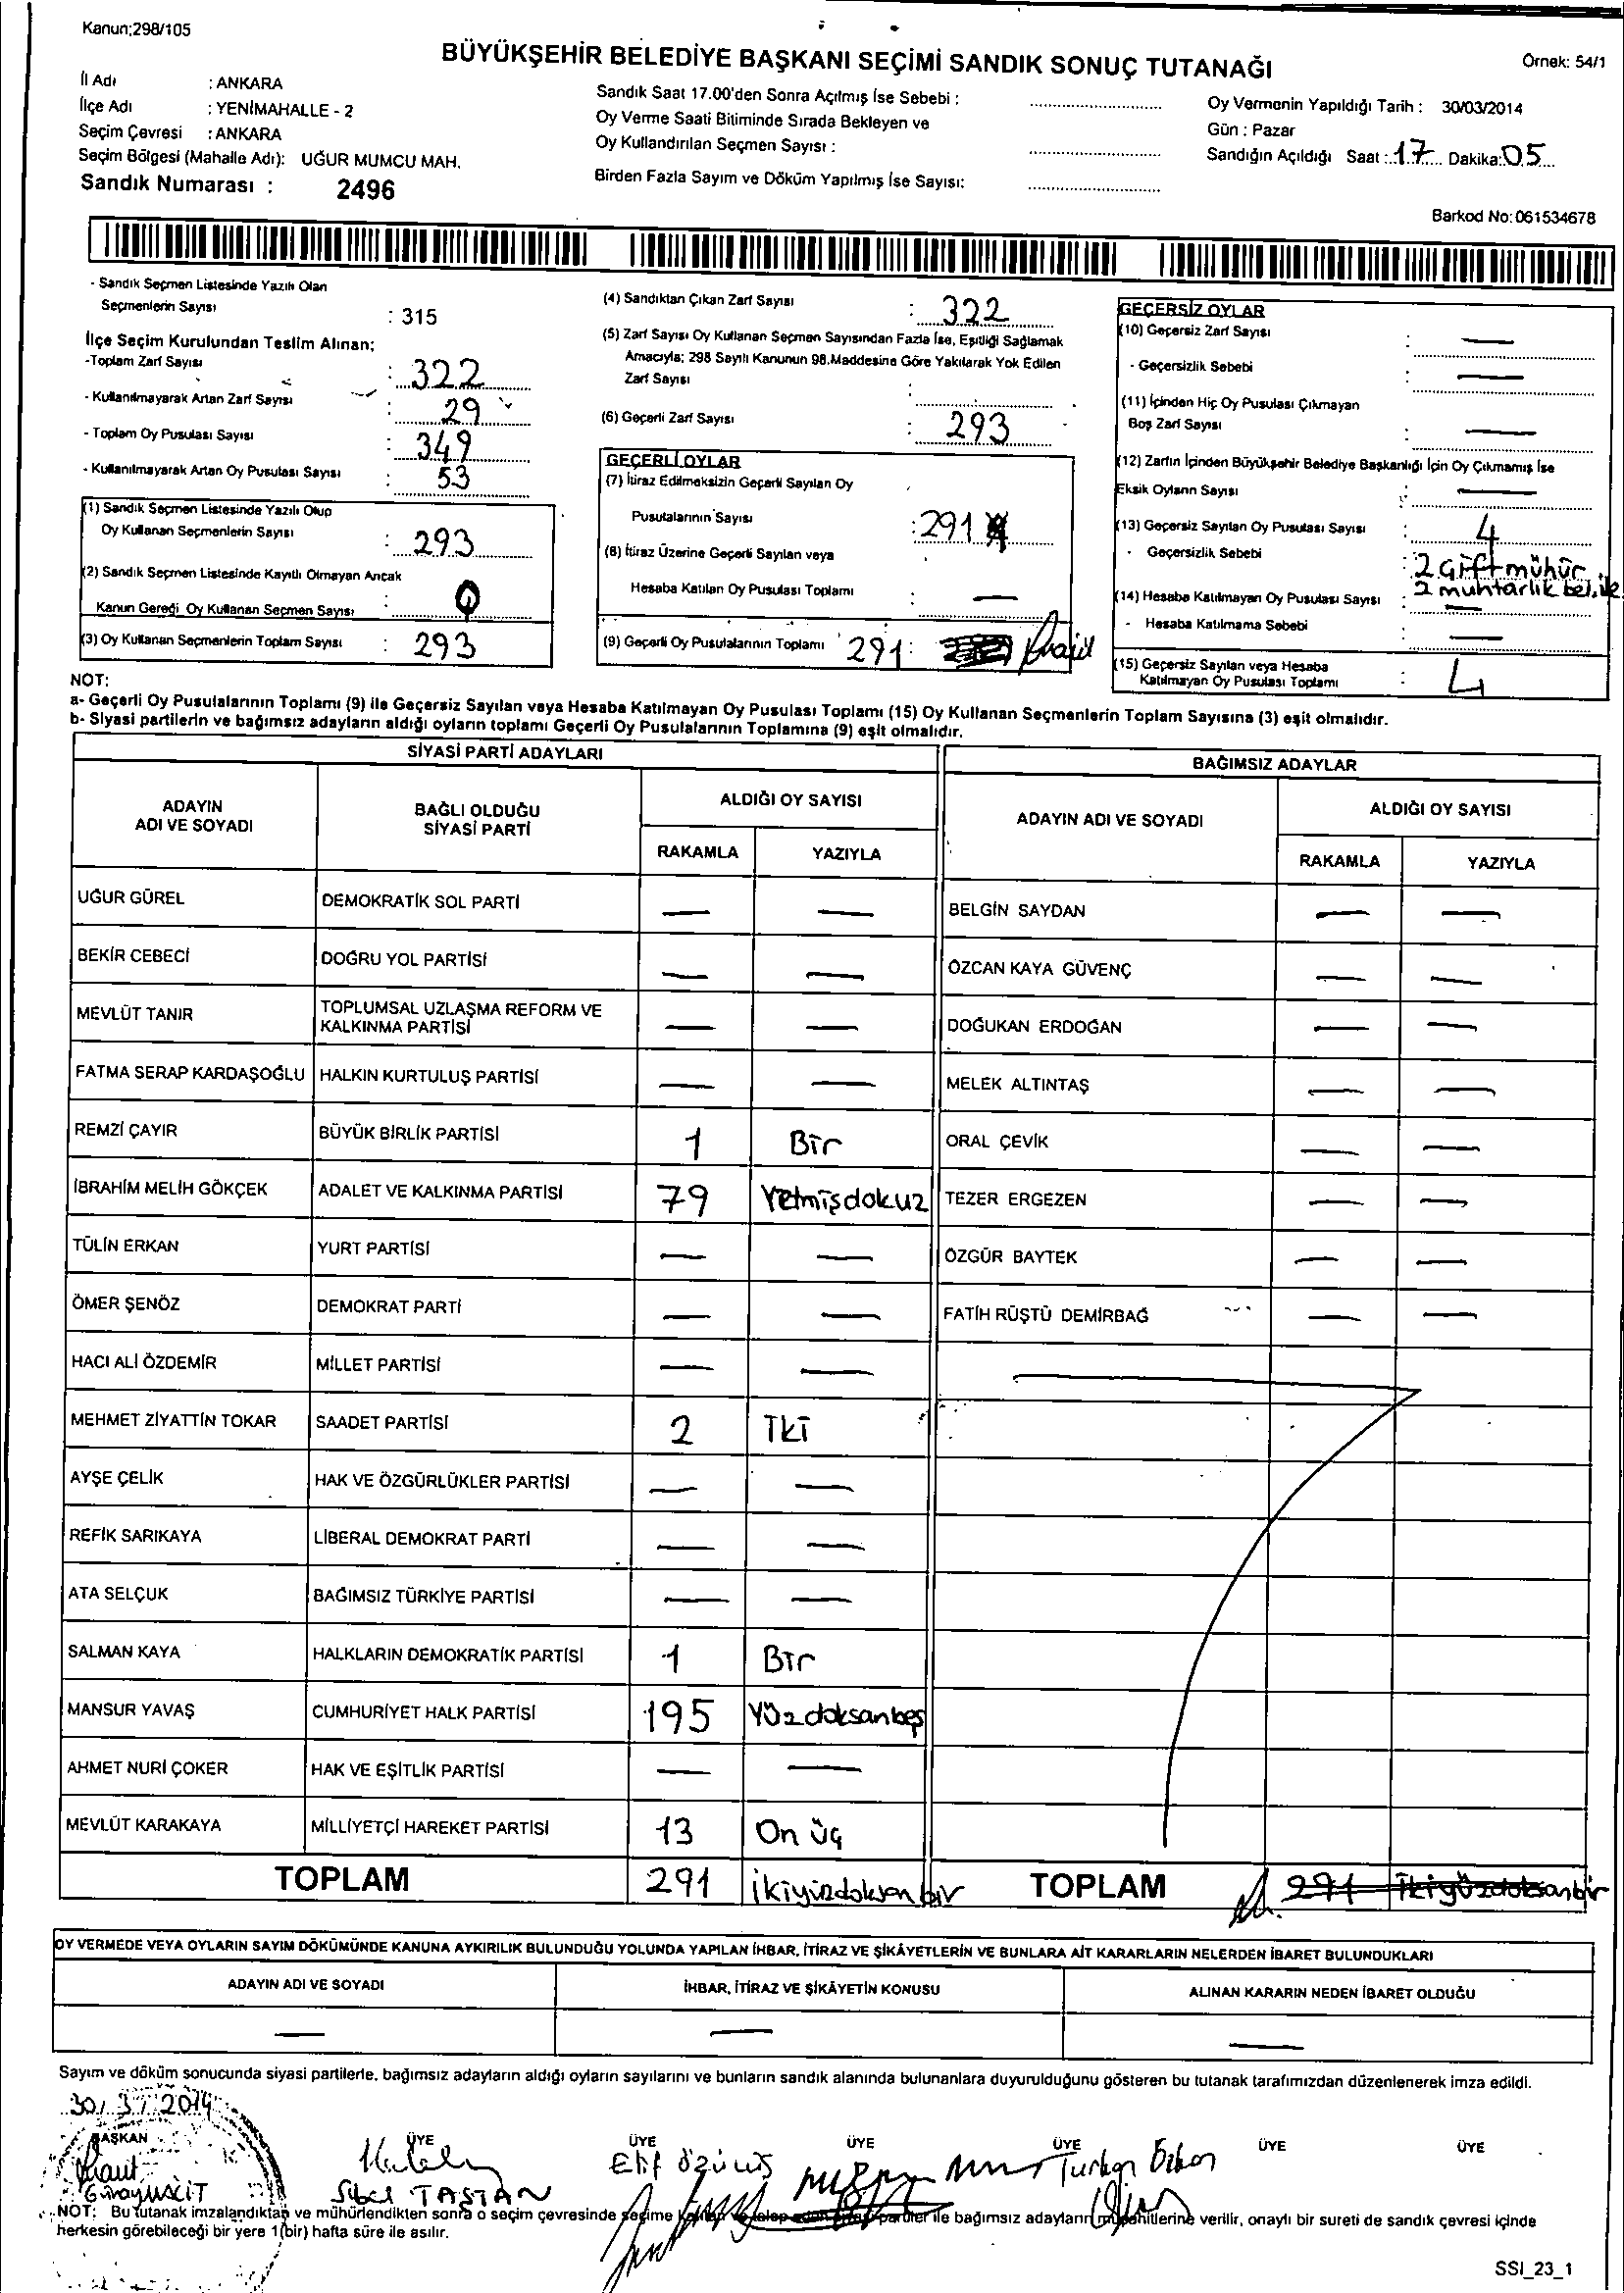 Kanun;298/105
BÜYÜKŞEHİR BELEDİYE BAŞKANI SEÇİMİ SANDIK SONUÇ TUTANAĞI
Örnek: 54/1
İl Adı : ANKARA
İlçe Adı : YENİMAHALLE - 2
Seçim Çevresi : ANKARA
Seçim Bölgesi (Mahalle Adı): UĞUR MUMCU MAH.
Sandık Numarası : 2496
Sandık Saat 17.00'den Sonra Açılmış İse Sebebi :
Oy Verme Saati Bitiminde Sırada Bekleyen ve
Oy Kullandırılan Seçmen Sayısı :
Birden Fazla Sayım ve Döküm Yapılmış İse Sayısı:
Oy Vermenin Yapıldığı Tarih : 30/03/2014
Gün : Pazar
Sandığın Açıldığı Saat : 17 Dakika: 05
Barkod No: 061534678
- Sandık Seçmen Listesinde Yazılı Olan
Seçmenlerin Sayısı : 315
İlçe Seçim Kurulundan Teslim Alınan;
-Toplam Zarf Sayısı : 322
- Kullanılmayarak Artan Zarf Sayısı : 29
- Toplam Oy Pusulası Sayısı : 349
- Kullanılmayarak Artan Oy Pusulası Sayısı : 53
(1) Sandık Seçmen Listesinde Yazılı Olup
Oy Kullanan Seçmenlerin Sayısı : 293
(2) Sandık Seçmen Listesinde Kayıtlı Olmayan Ancak
Kanun Gereği Oy Kullanan Seçmen Sayısı : 0
(3) Oy Kullanan Seçmenlerin Toplam Sayısı : 293
(4) Sandıktan Çıkan Zarf Sayısı : 322
(5) Zarf Sayısı Oy Kullanan Seçmen Sayısından Fazla İse, Eşitliği Sağlamak
Amacıyla; 298 Sayılı Kanunun 98.Maddesine Göre Yakılarak Yok Edilen
Zarf Sayısı :
(6) Geçerli Zarf Sayısı : 293
GEÇERLİ OYLAR
(7) İtiraz Edilmeksizin Geçerli Sayılan Oy
Pusulalarının Sayısı : 291
(8) İtiraz Üzerine Geçerli Sayılan veya
Hesaba Katılan Oy Pusulası Toplamı : —
(9) Geçerli Oy Pusulalarının Toplamı 291 :
GEÇERSİZ OYLAR
(10) Geçersiz Zarf Sayısı : —
- Geçersizlik Sebebi : —
(11) İçinden Hiç Oy Pusulası Çıkmayan
Boş Zarf Sayısı : —
(12) Zarfın İçinden Büyükşehir Belediye Başkanlığı İçin Oy Çıkmamış İse
Eksik Oyların Sayısı : —
(13) Geçersiz Sayılan Oy Pusulası Sayısı : 4
- Geçersizlik Sebebi : 2 çift mühür
2 muhtarlık bel.ile
(14) Hesaba Katılmayan Oy Pusulası Sayısı : —
- Hesaba Katılmama Sebebi : —
(15) Geçersiz Sayılan veya Hesaba
Katılmayan Oy Pusulası Toplamı : 4
NOT:
a- Geçerli Oy Pusulalarının Toplamı (9) ile Geçersiz Sayılan veya Hesaba Katılmayan Oy Pusulası Toplamı (15) Oy Kullanan Seçmenlerin Toplam Sayısına (3) eşit olmalıdır.
b- Siyasi partilerin ve bağımsız adayların aldığı oyların toplamı Geçerli Oy Pusulalarının Toplamına (9) eşit olmalıdır.
SİYASİ PARTİ ADAYLARI BAĞIMSIZ ADAYLAR
ADAYIN ADI VE SOYADI BAĞLI OLDUĞU SİYASİ PARTİ ALDIĞI OY SAYISI ADAYIN ADI VE SOYADI ALDIĞI OY SAYISI
RAKAMLA YAZIYLA RAKAMLA YAZIYLA
UĞUR GÜREL DEMOKRATİK SOL PARTİ — — BELGİN SAYDAN — —
BEKİR CEBECİ DOĞRU YOL PARTİSİ — — ÖZCAN KAYA GÜVENÇ — —
MEVLÜT TANIR TOPLUMSAL UZLAŞMA REFORM VE KALKINMA PARTİSİ — — DOĞUKAN ERDOĞAN — —
FATMA SERAP KARDAŞOĞLU HALKIN KURTULUŞ PARTİSİ — — MELEK ALTINTAŞ — —
REMZİ ÇAYIR BÜYÜK BİRLİK PARTİSİ 1 Bir ORAL ÇEVİK — —
İBRAHİM MELİH GÖKÇEK ADALET VE KALKINMA PARTİSİ 79 Yetmişdokuz TEZER ERGEZEN — —
TÜLİN ERKAN YURT PARTİSİ — — ÖZGÜR BAYTEK — —
ÖMER ŞENÖZ DEMOKRAT PARTİ — — FATİH RÜŞTÜ DEMİRBAĞ — —
HACI ALİ ÖZDEMİR MİLLET PARTİSİ — —
MEHMET ZİYATTİN TOKAR SAADET PARTİSİ 2 İki
AYŞE ÇELİK HAK VE ÖZGÜRLÜKLER PARTİSİ — —
REFİK SARIKAYA LİBERAL DEMOKRAT PARTİ — —
ATA SELÇUK BAĞIMSIZ TÜRKİYE PARTİSİ — —
SALMAN KAYA HALKLARIN DEMOKRATİK PARTİSİ 1 Bir
MANSUR YAVAŞ CUMHURİYET HALK PARTİSİ 195 Yüzdoksanbeş
AHMET NURİ ÇOKER HAK VE EŞİTLİK PARTİSİ — —
MEVLÜT KARAKAYA MİLLİYETÇİ HAREKET PARTİSİ 13 On üç
TOPLAM 291 ikiyüzdoksanbir TOPLAM 291 İkiyüzdoksanbir
OY VERMEDE VEYA OYLARIN SAYIM DÖKÜMÜNDE KANUNA AYKIRILIK BULUNDUĞU YOLUNDA YAPILAN İHBAR, İTİRAZ VE ŞİKÂYETLERİN VE BUNLARA AİT KARARLARIN NELERDEN İBARET BULUNDUKLARI
ADAYIN ADI VE SOYADI İHBAR, İTİRAZ VE ŞİKÂYETİN KONUSU ALINAN KARARIN NEDEN İBARET OLDUĞU
— — —
Sayım ve döküm sonucunda siyasi partilerle, bağımsız adayların aldığı oyların sayılarını ve bunların sandık alanında bulunanlara duyurulduğunu gösteren bu tutanak tarafımızdan düzenlenerek imza edildi.
30/3/2014
BAŞKAN ÜYE ÜYE ÜYE ÜYE ÜYE ÜYE
Elif Türkan Özkan
Sibel TAŞTAN
NOT: Bu tutanak imzalandıktan ve mühürlendikten sonra o seçim çevresinde seçime katılan ve talep eden siyasi partiler ile bağımsız adayların müşahitlerine verilir, onaylı bir sureti de sandık çevresi içinde
herkesin görebileceği bir yere 1(bir) hafta süre ile asılır.
SSI_23_1